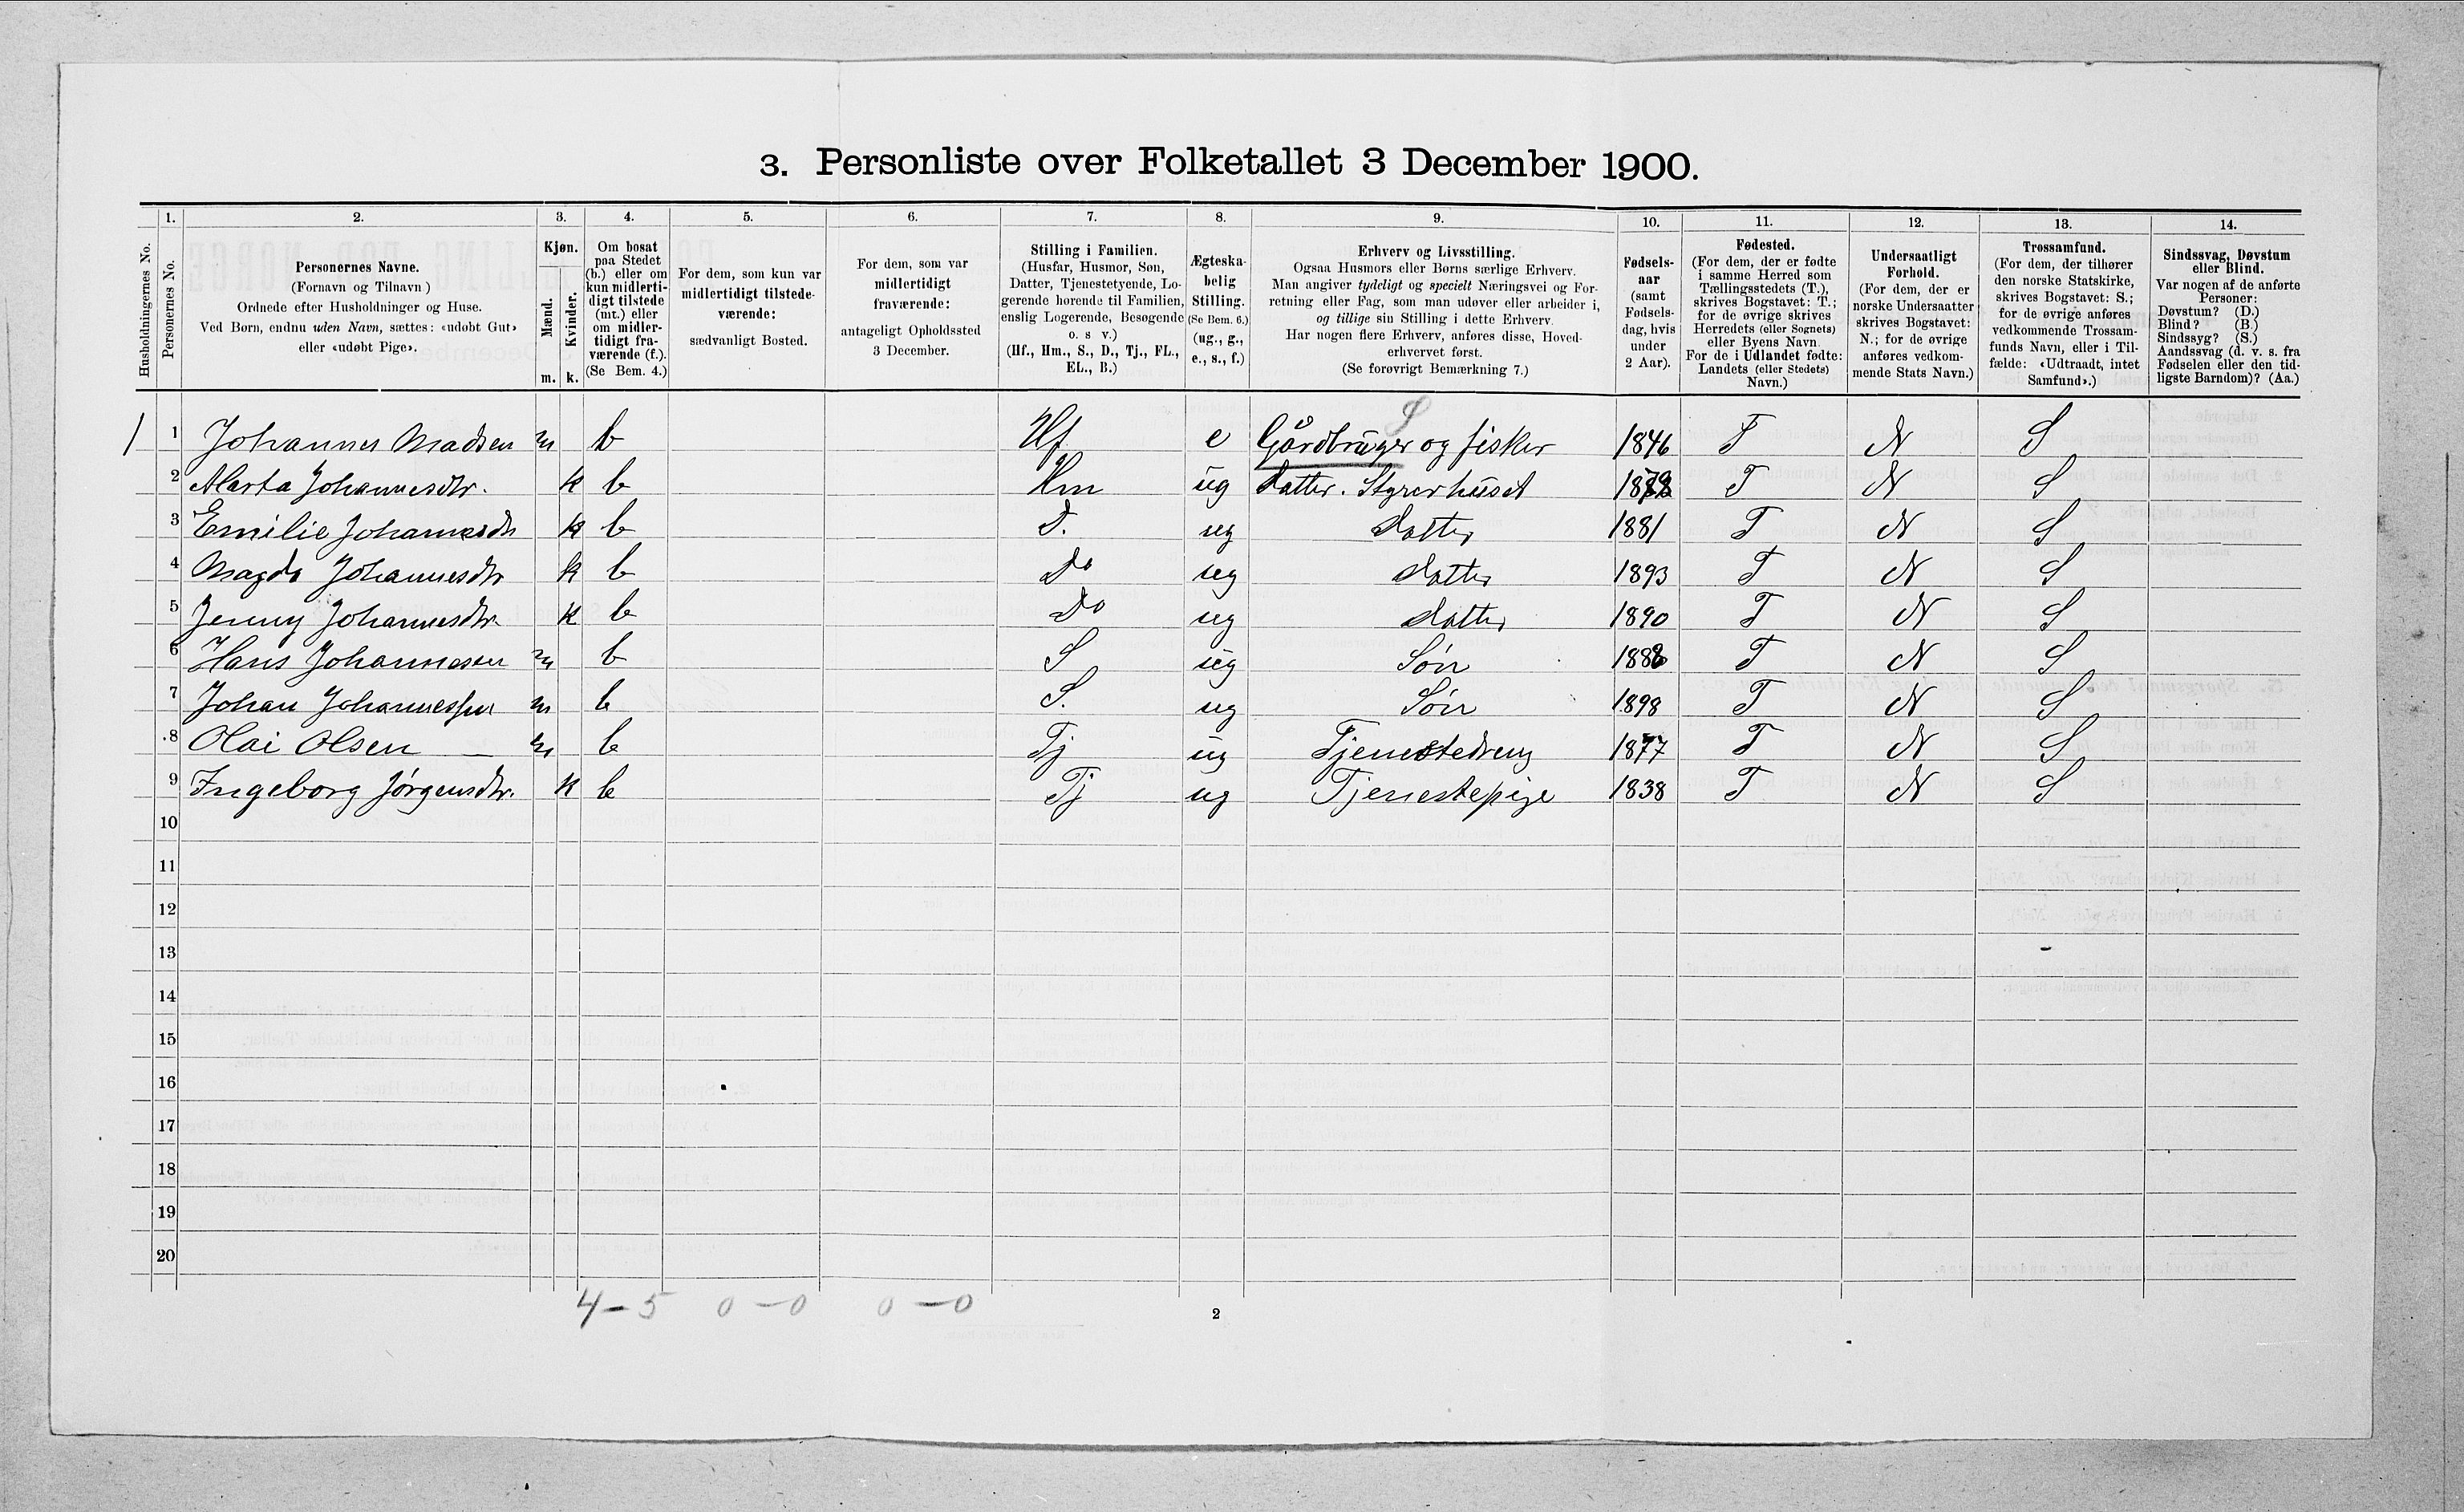 3. Personliste over Folketallet 3 December 1900.
1. 2. 3. 4. 5. 6. 7. 8. 9. 10. 11. 12. 13. 14.
Husholdningernes No.
Personernes No.
Personernes Navne.
(Fornavn og Tilnavn)
Ordnede efter Husholdninger og Huse.
Ved Børn, endnu uden Navn, sættes: «udøbt Gut»
eller «udøbt Pige».
Kjøn.
Mænd.
Kvinder.
m. k.
Om bosat
paa Stedet
(b.) eller om
kun midlerti-
digt tilstede
(mt.) eller
om midler-
tidigt fra-
værende (f.).
(Se Bem. 4.)
For dem, som kun var
midlertidigt tilstede-
værende:
sædvanligt Bosted.
For dem, som var
midlertidigt
fraværende:
antageligt Opholdssted
3 December.
Stilling i Familien.
(Husfar, Husmor, Søn,
Datter, Tjenestetyende, Lo-
gerende hørende til Familien,
enslig Logerende, Besøgende
o. s v.)
(Hf., Hm., S., D., Tj., FL.,
EL., B.)
Ægteska-
belig
Stilling.
(Se Bem. 6.)
(ug., g.,
e., s., f.)
Erhverv og Livsstilling.
Ogsaa Husmors eller Børns særlige Erhverv.
Man angiver tydeligt og specielt Næringsvei og For-
retning eller Fag, som man udøver eller arbeider i,
og tillige sin Stilling i dette Erhverv.
Har nogen flere Erhverv, anføres disse, Hoved-
erhvervet først.
(Se forøvrigt Bemærkning 7.)
Fødsels-
aar
(samt
Fødsels-
dag, hvis
under
2 Aar).
Fødested.
(For dem, der er fødte
i samme Herred som
Tællingsstedets (T.),
skrives Bogstavet: T.;
for de øvrige skrives
Herredets (eller Sognets)
eller Byens Navn.
For de i Udlandet fødte:
Landets (eller Stedets)
Navn.)
Undersaatligt
Forhold.
(For dem, der er
norske Undersaatter
skrives Bogstavet:
N.; for de øvrige
anføres vedkom-
mende Stats Navn.)
Trossamfund.
(For dem, der tilhører
den norske Statskirke,
skrives Bogstavet: S.;
for de øvrige anføres
vedkommende Trossam-
funds Navn, eller i Til-
fælde: «Udtraadt, intet
Samfund».)
Sindssvag, Døvstum
eller Blind.
Var nogen af de anførte
Personer:
Døvstum? (D.)
Blind? (B.)
Sindssyg? (S.)
Aandssvag (d. v. s. fra
Fødselen eller den tid-
ligste Barndom)? (Aa.)
S
1 1 Johannes Madsen m b Hf e Gårdbruger og fisker 1846 T N S
2 Marta Johannesdtr. k b Hm ug datter. Styrer huset T N S
3 Emilie Johannesdtr k b D. ug datter 1881 T N S
4 Magda Johannesdtr k b Do ug datter 1893 T N S
5 Jenny Johannesdtr. k b Do ug datter 1890 T N S
6 Hans Johannessen m b S ug Søn T N S
7 Johan Johannessen m b S. ug Søn 1898 T N S
8 Olai Olsen m b Tj ug Tjenestedreng 1877 T N S
9 Ingeborg Jørgensdtr. k b Tj ug Tjenestepige 1838 T N S
10
11
12
13
14
15
16
17
18
19
20
4 – 5 0 – 0 0 – 0
2